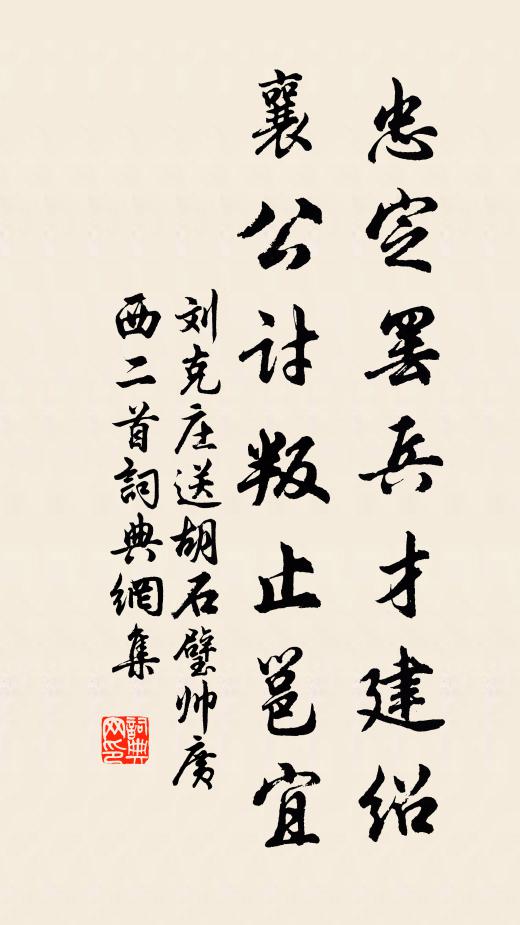 忠定罢兵才建绍
襄公讨叛止邕宜
刘克庄送胡石壁帅广
西二首詞典網集
詞典网印